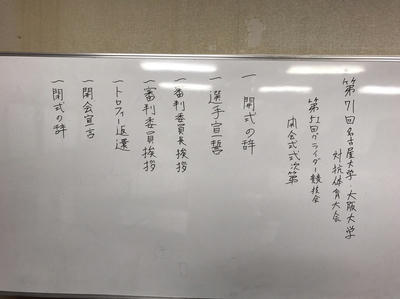 第71回名古屋大学・大阪大学
対抗体育大会
第51回グライダー競技会
開会式式次第
一 開式の辞
一 選手宣誓
一 審判委員長挨拶
一 審判委員挨拶
一 トロフィー返還
一 開会宣言
一 閉式の辞